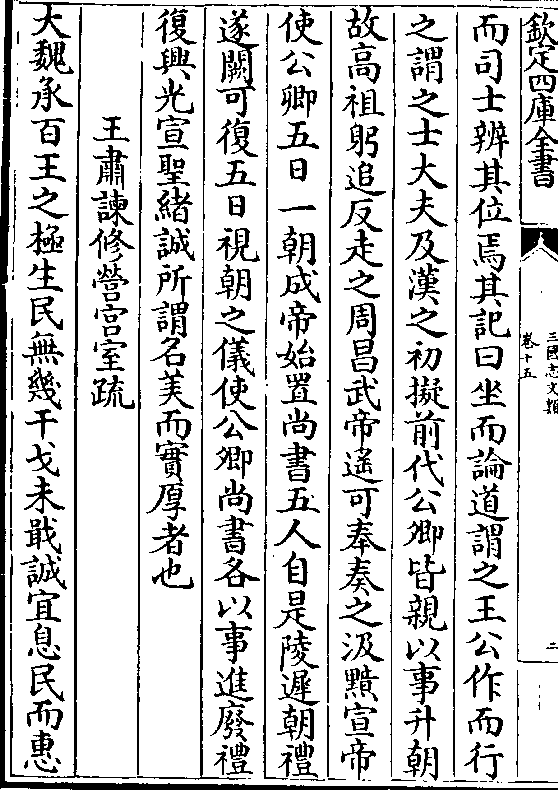 欽定四庫全書
三國志文類
卷十五
二
而司士辨其位焉其記曰坐而論道謂之王公作而行
之謂之士大夫及漢之初擬前代公卿皆親以事升朝
故高祖躬追反走之周昌武帝遙可奉奏之汲黯宣帝
使公卿五日一朝成帝始置尚書五人自是陵遲朝禮
遂闕可復五日視朝之儀使公卿尚書各以事進廢禮
復興光宣聖緒誠所謂名美而實厚者也
王肅諫修營宮室疏
大魏承百王之極生民無幾干戈未戢誠宜息民而惠